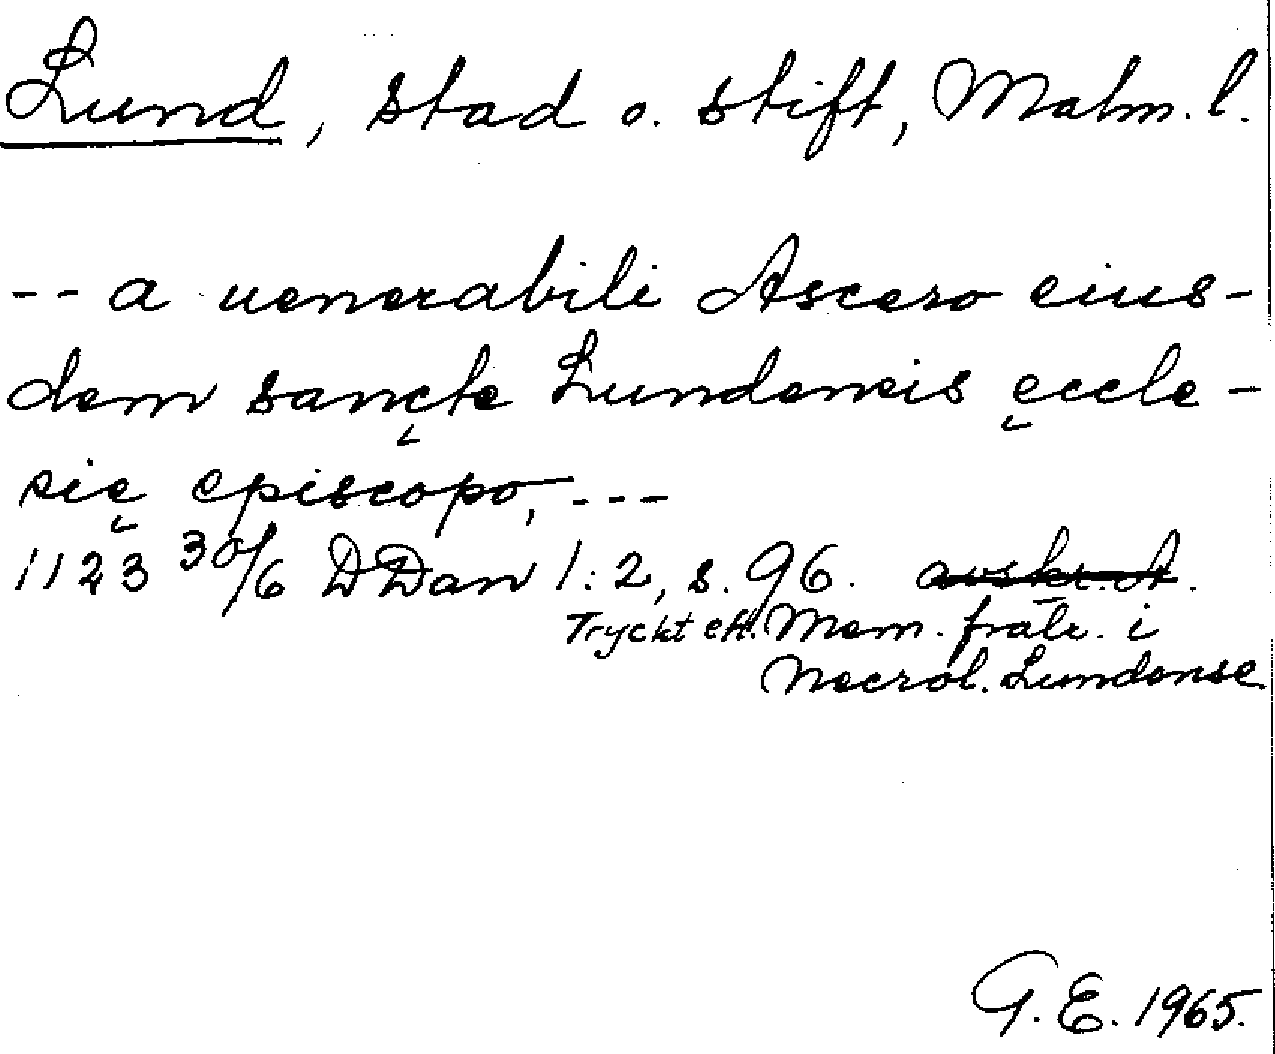 Lund, stad o. stift, Malm. l.
-- a uenerabili Ascero eius-
dem sancte Lundensis ęccle-
się episcopo, ---
1123 30/6 DDan 1:2, s. 96. avskr. A.
Tryckt eft. Mem. fratr. i
Necrol. Lundense
G. E. 1965.